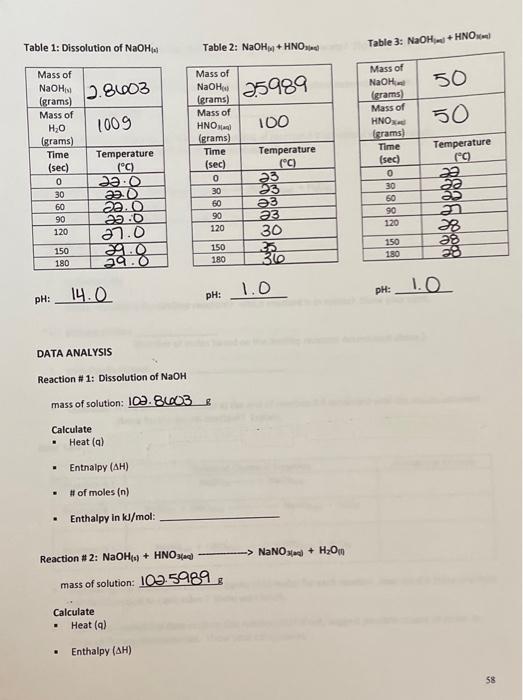 Table 1: Dissolution of NaOH(s)
Table 2: NaOH(s) + HNO3(aq)
Table 3: NaOH(aq) + HNO3(aq)
Mass of NaOH(s) (grams) 2.86003
Mass of H2O (grams) 100g
Time (sec) Temperature (°C)
0 22.0
30 22.0
60 22.0
90 22.0
120 27.0
150 29.0
180 29.0
pH: 14.0
Mass of NaOH(s) (grams) 2.5989
Mass of HNO3(aq) (grams) 100
Time (sec) Temperature (°C)
0 23
30 23
60 23
90 23
120 30
150 35
180 36
pH: 1.0
Mass of NaOH(aq) (grams) 50
Mass of HNO3(aq) (grams) 50
Time (sec) Temperature (°C)
0 22
30 22
60 22
90 27
120 28
150 28
180 28
pH: 1.0
DATA ANALYSIS
Reaction # 1: Dissolution of NaOH
mass of solution: 102.86003 g
Calculate
▪ Heat (q)
▪ Entnalpy (ΔH)
▪ # of moles (n)
▪ Enthalpy in kJ/mol:
Reaction # 2: NaOH(s) + HNO3(aq) ----------> NaNO3(aq) + H2O(l)
mass of solution: 102.5989 g
Calculate
▪ Heat (q)
▪ Enthalpy (ΔH)
58